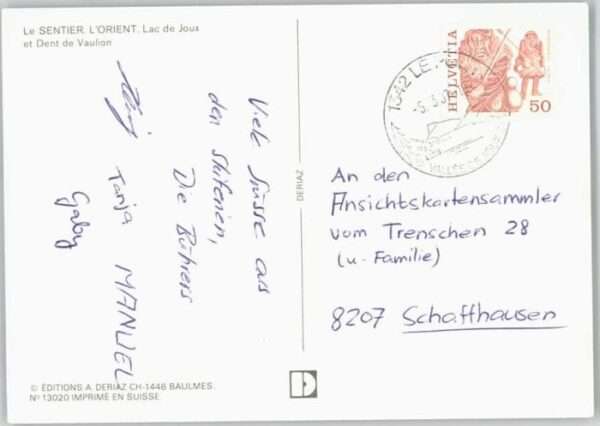 Le SENTIER. L'ORIENT. Lac de Joux
et Dent de Vaulion
Viele Grüsse aus
den Skiferien,
Die Bührers
Tanja MANUEL
Gaby
DERIAZ
HELVETIA
50
1342 LE
An den
Ansichtskartensammler
vom Trenschen 28
(u. Familie)
8207 Schaffhausen
© ÉDITIONS A. DERIAZ CH-1446 BAULMES
Nº 13020 IMPRIMÉ EN SUISSE